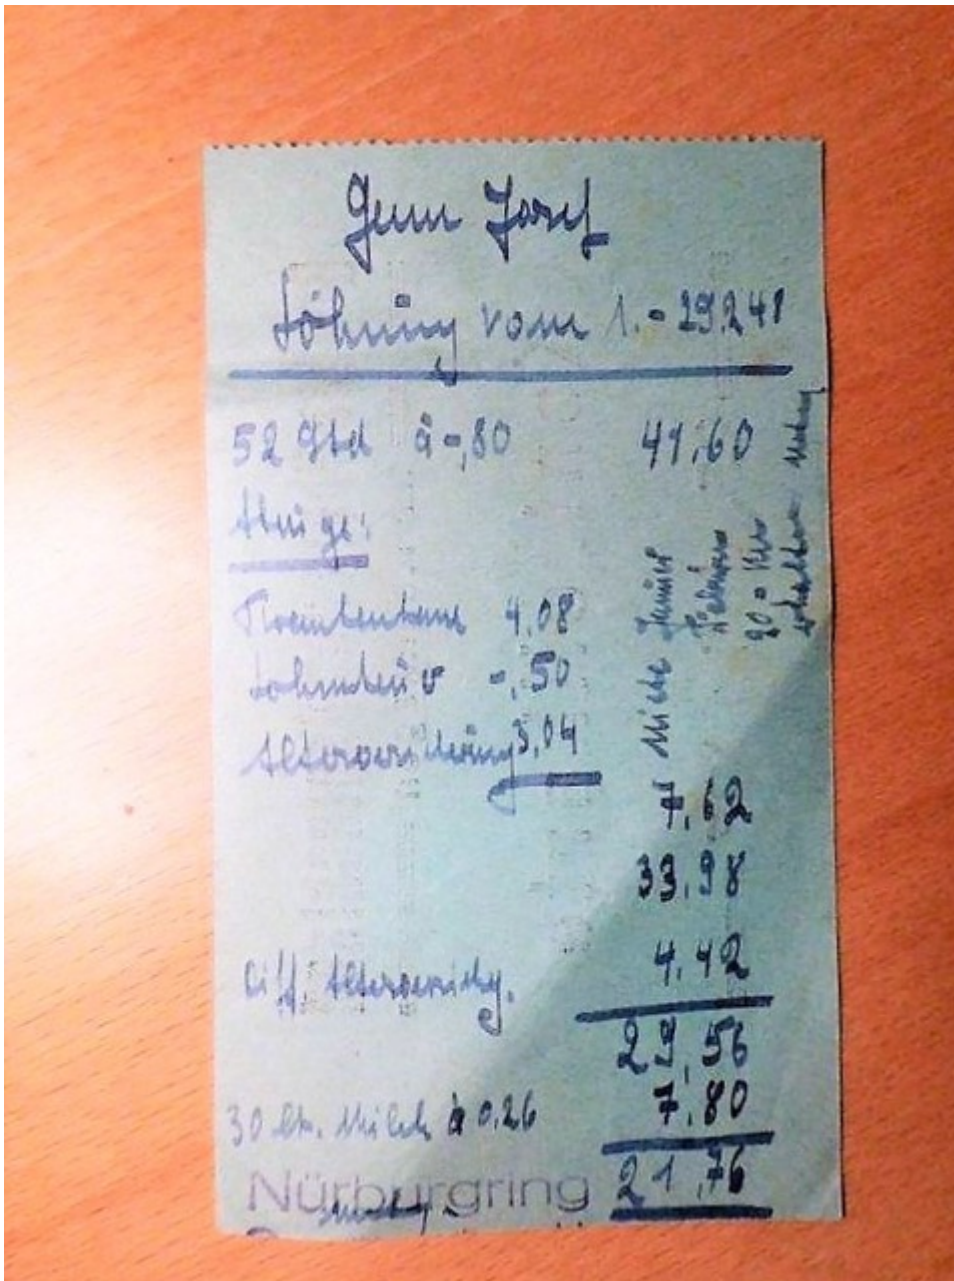 Josef
Löhnung vom 1.-29.2.48
52 Std à -,80 41,60
Abzüge:
Krankenkasse 4,08
Lohnsteuer -,50
Altersversicherung 3,04
7,62
33,98
Diff. Altersversichg. 4,42
29,56
30 ltr. Milch à 0,26 7,80
21,76
Miete Januar
Februar
erhalten
Nürburgring